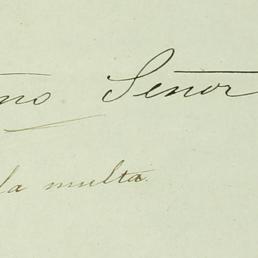 mo Señor
la multa.